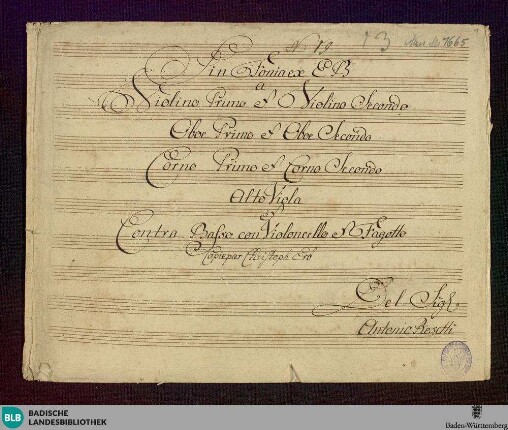 No 19 13 Mus. Ms. 1665
Sinfonia ex E B
a
Violino Primo et Violino Secondo
Oboe Primo et Oboe Secondo
Corno Primo et Corno Secondo
Alto Viola
et
Contra Basso con Violoncello et Fagotto
Copie par Christoph Erb
Del Sigl.
Antonio Rosetti
BLB BADISCHE
LANDESBIBLIOTHEK
Baden-Württemberg